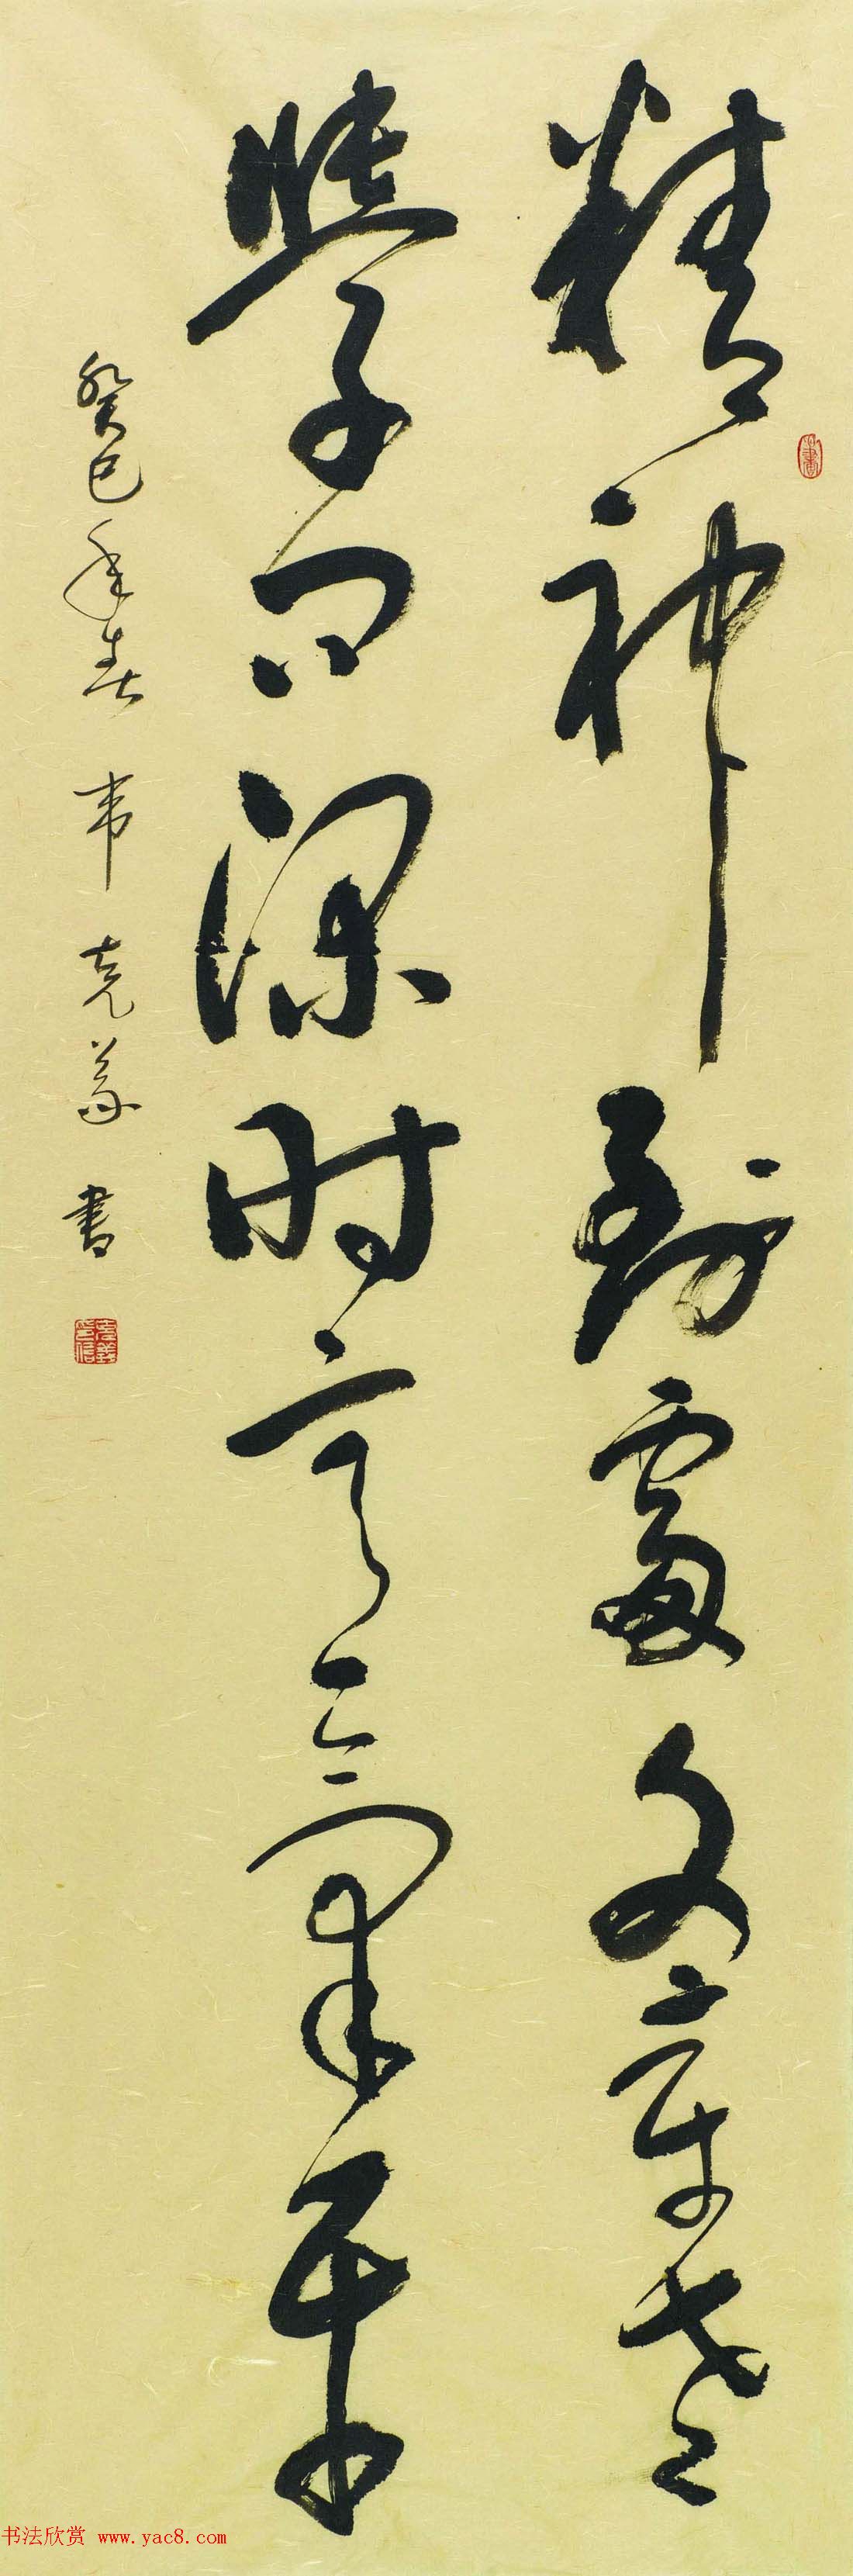 精神到處文章老
學問深时意氣平
癸巳年春 韦克義書
书法欣赏 www.yac8.com